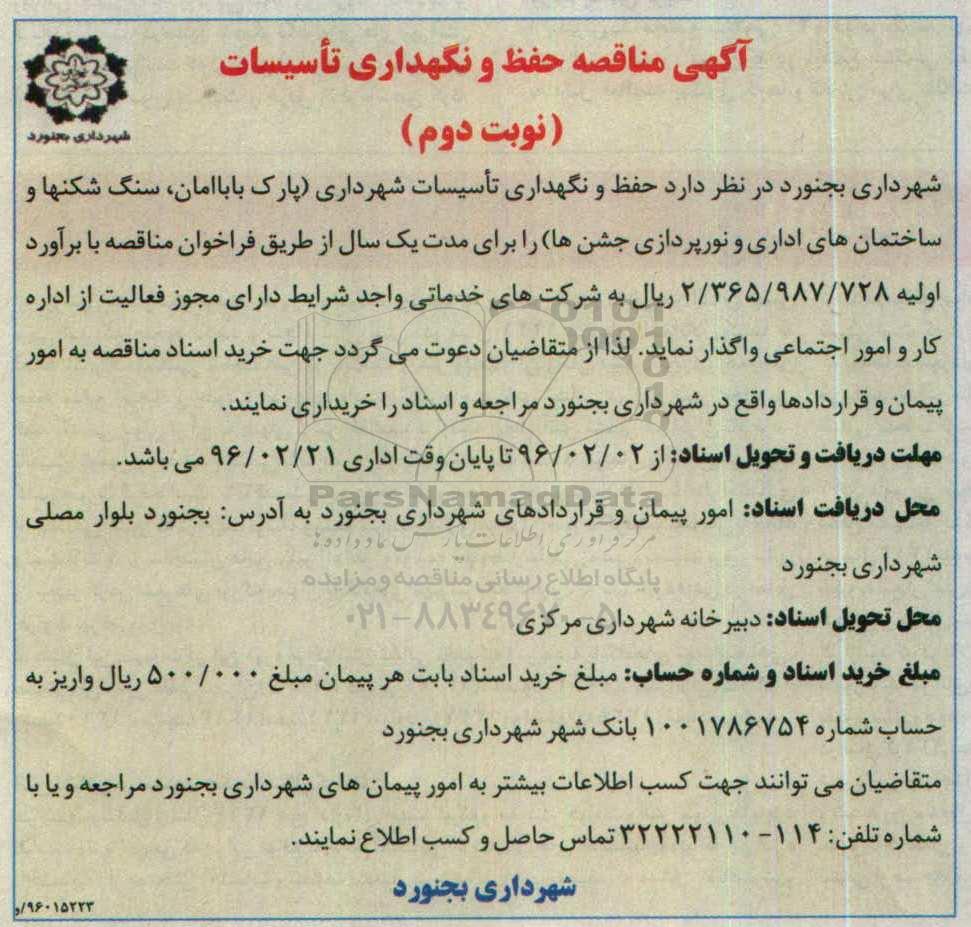 آگهی مناقصه حفظ و نگهداری تأسیسات
(نوبت دوم)
شهرداری بجنورد
شهرداری بجنورد در نظر دارد حفظ و نگهداری تأسیسات شهرداری (پارک باباامان، سنگ شکنها و
ساختمان های اداری و نورپردازی جشن ها) را برای مدت یک سال از طریق فراخوان مناقصه با برآورد
اولیه ۲/۳۶۵/۹۸۷/۷۲۸ ریال به شرکت های خدماتی واجد شرایط دارای مجوز فعالیت از اداره
کار و امور اجتماعی واگذار نماید. لذا از متقاضیان دعوت می گردد جهت خرید اسناد مناقصه به امور
پیمان و قراردادها واقع در شهرداری بجنورد مراجعه و اسناد را خریداری نمایند.
مهلت دریافت و تحویل اسناد: از ۹۶/۰۲/۰۲ تا پایان وقت اداری ۹۶/۰۲/۲۱ می باشد.
ParsNamadData
محل دریافت اسناد: امور پیمان و قراردادهای شهرداری بجنورد به آدرس: بجنورد بلوار مصلی
مرکز فرآوری اطلاعات پارس نماد داده ها
شهرداری بجنورد
پایگاه اطلاع رسانی مناقصه و مزایده
محل تحویل اسناد: دبیرخانه شهرداری مرکزی
۰۲۱-۸۸۳۴۹۶۷۰-۵
مبلغ خرید اسناد و شماره حساب: مبلغ خرید اسناد بابت هر پیمان مبلغ ۵۰۰/۰۰۰ ریال واریز به
حساب شماره ۱۰۰۱۷۸۶۷۵۴ بانک شهر شهرداری بجنورد
متقاضیان می توانند جهت کسب اطلاعات بیشتر به امور پیمان های شهرداری بجنورد مراجعه و یا با
شماره تلفن: ۱۱۴- ۳۲۲۲۲۱۱۰ تماس حاصل و کسب اطلاع نمایند.
شهرداری بجنورد
۹۶۰۱۵۲۲۳/و